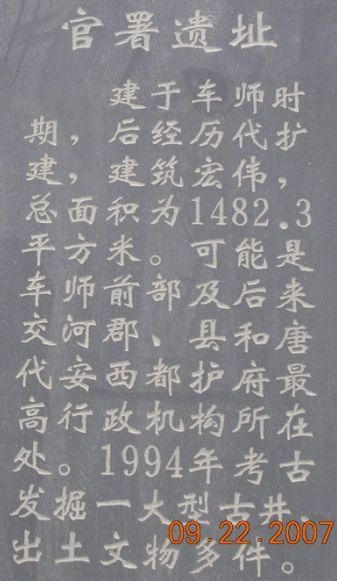 官署遗址
建于车师时
期，后经历代扩
建，建筑宏伟，
总面积为1482.3
平方米。可能是
车师前部、及后来
交河郡、县和唐
代安西都护府最
高行政机构所在
处。1994年考古
发掘一大型古井，
出土文物多件。
09.22.2007